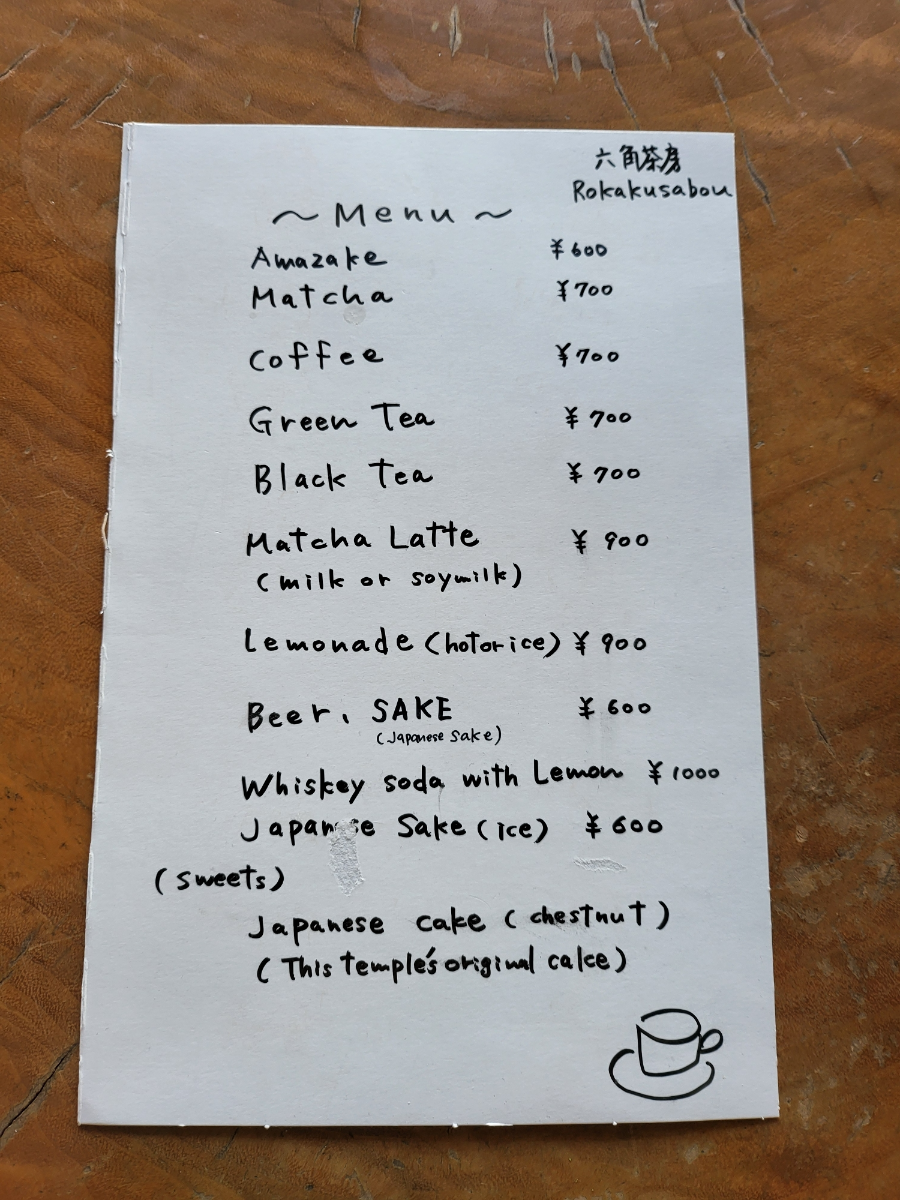 六角茶房
Rokakusabou
～ Menu ～
Amazake ¥600
Matcha ¥700
Coffee ¥700
Green Tea ¥700
Black Tea ¥700
Matcha Latte ¥900
(milk or soymilk)
Lemonade (hot or ice) ¥900
Beer、SAKE ¥600
(Japanese Sake)
Whiskey soda with Lemon ¥1000
Japanese Sake (ice) ¥600
(sweets)
Japanese cake (chestnut)
(This temple's original cake)